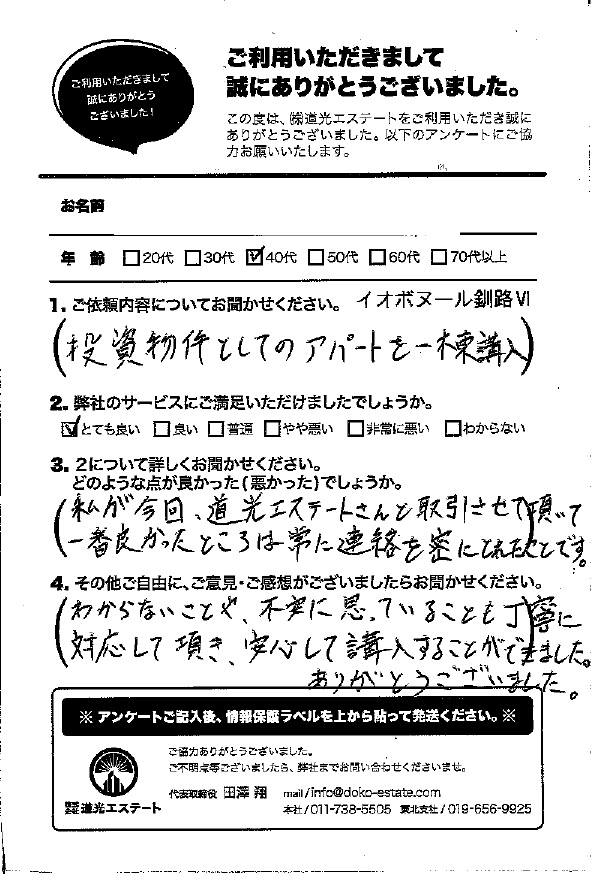 ご利用いただきまして
誠にありがとう
ございました!
ご利用いただきまして
誠にありがとうございました。
この度は、㈱道光エステートをご利用いただき誠に
ありがとうございました。以下のアンケートにご協
力お願いいたします。
お名前
年 齢 □20代 □30代 ☑40代 □50代 □60代 □70代以上
1. ご依頼内容についてお聞かせください。 イオボヌール釧路Ⅵ
(投資物件としてのアパートを一棟購入)
2. 弊社のサービスにご満足いただけましたでしょうか。
☑とても良い □良い □普通 □やや悪い □非常に悪い □わからない
3. 2について詳しくお聞かせください。
どのような点が良かった(悪かった)でしょうか。
(私が今回、道光エステートさんと取引させて頂いて
一番良かったところは常に連絡を密にとれたことです。)
4. その他ご自由に、ご意見・ご感想がございましたらお聞かせください。
(わからないことや、不安に思っていることも丁寧に
対応して頂き、安心して購入することができました。)
ありがとうございました。
※ アンケートご記入後、情報保護ラベルを上から貼って発送ください。※
ご協力ありがとうございました。
ご不明点等ございましたら、弊社までお問い合わせくださいませ。
代表取締役 田澤 翔 mail/info@doko-estate.com
株式会社 道光エステート
本社/011-738-5505 東北支社/019-656-9925